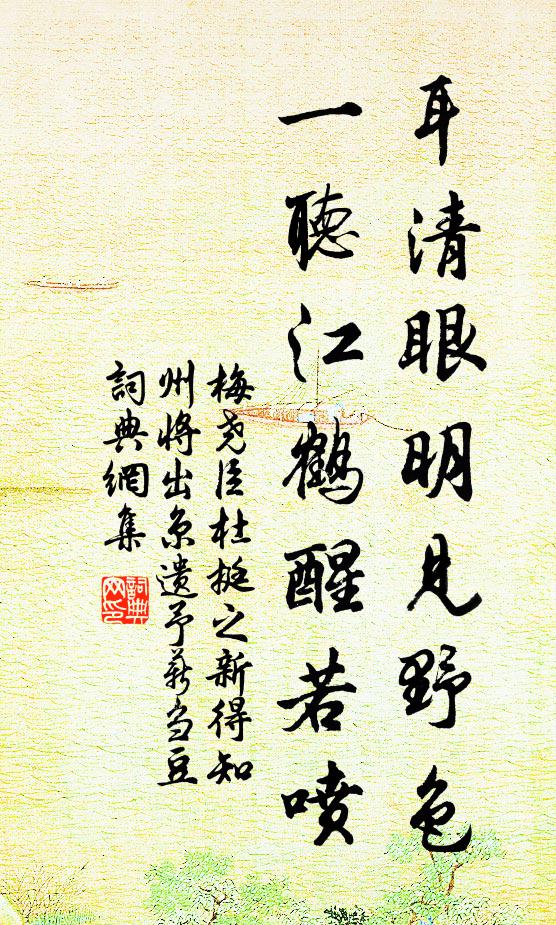 耳清眼明見野色
一聽江鶴醒若噴
梅尧臣杜挺之新得知
州將出京遗予薪芻豆
詞典網集
詞典
网印